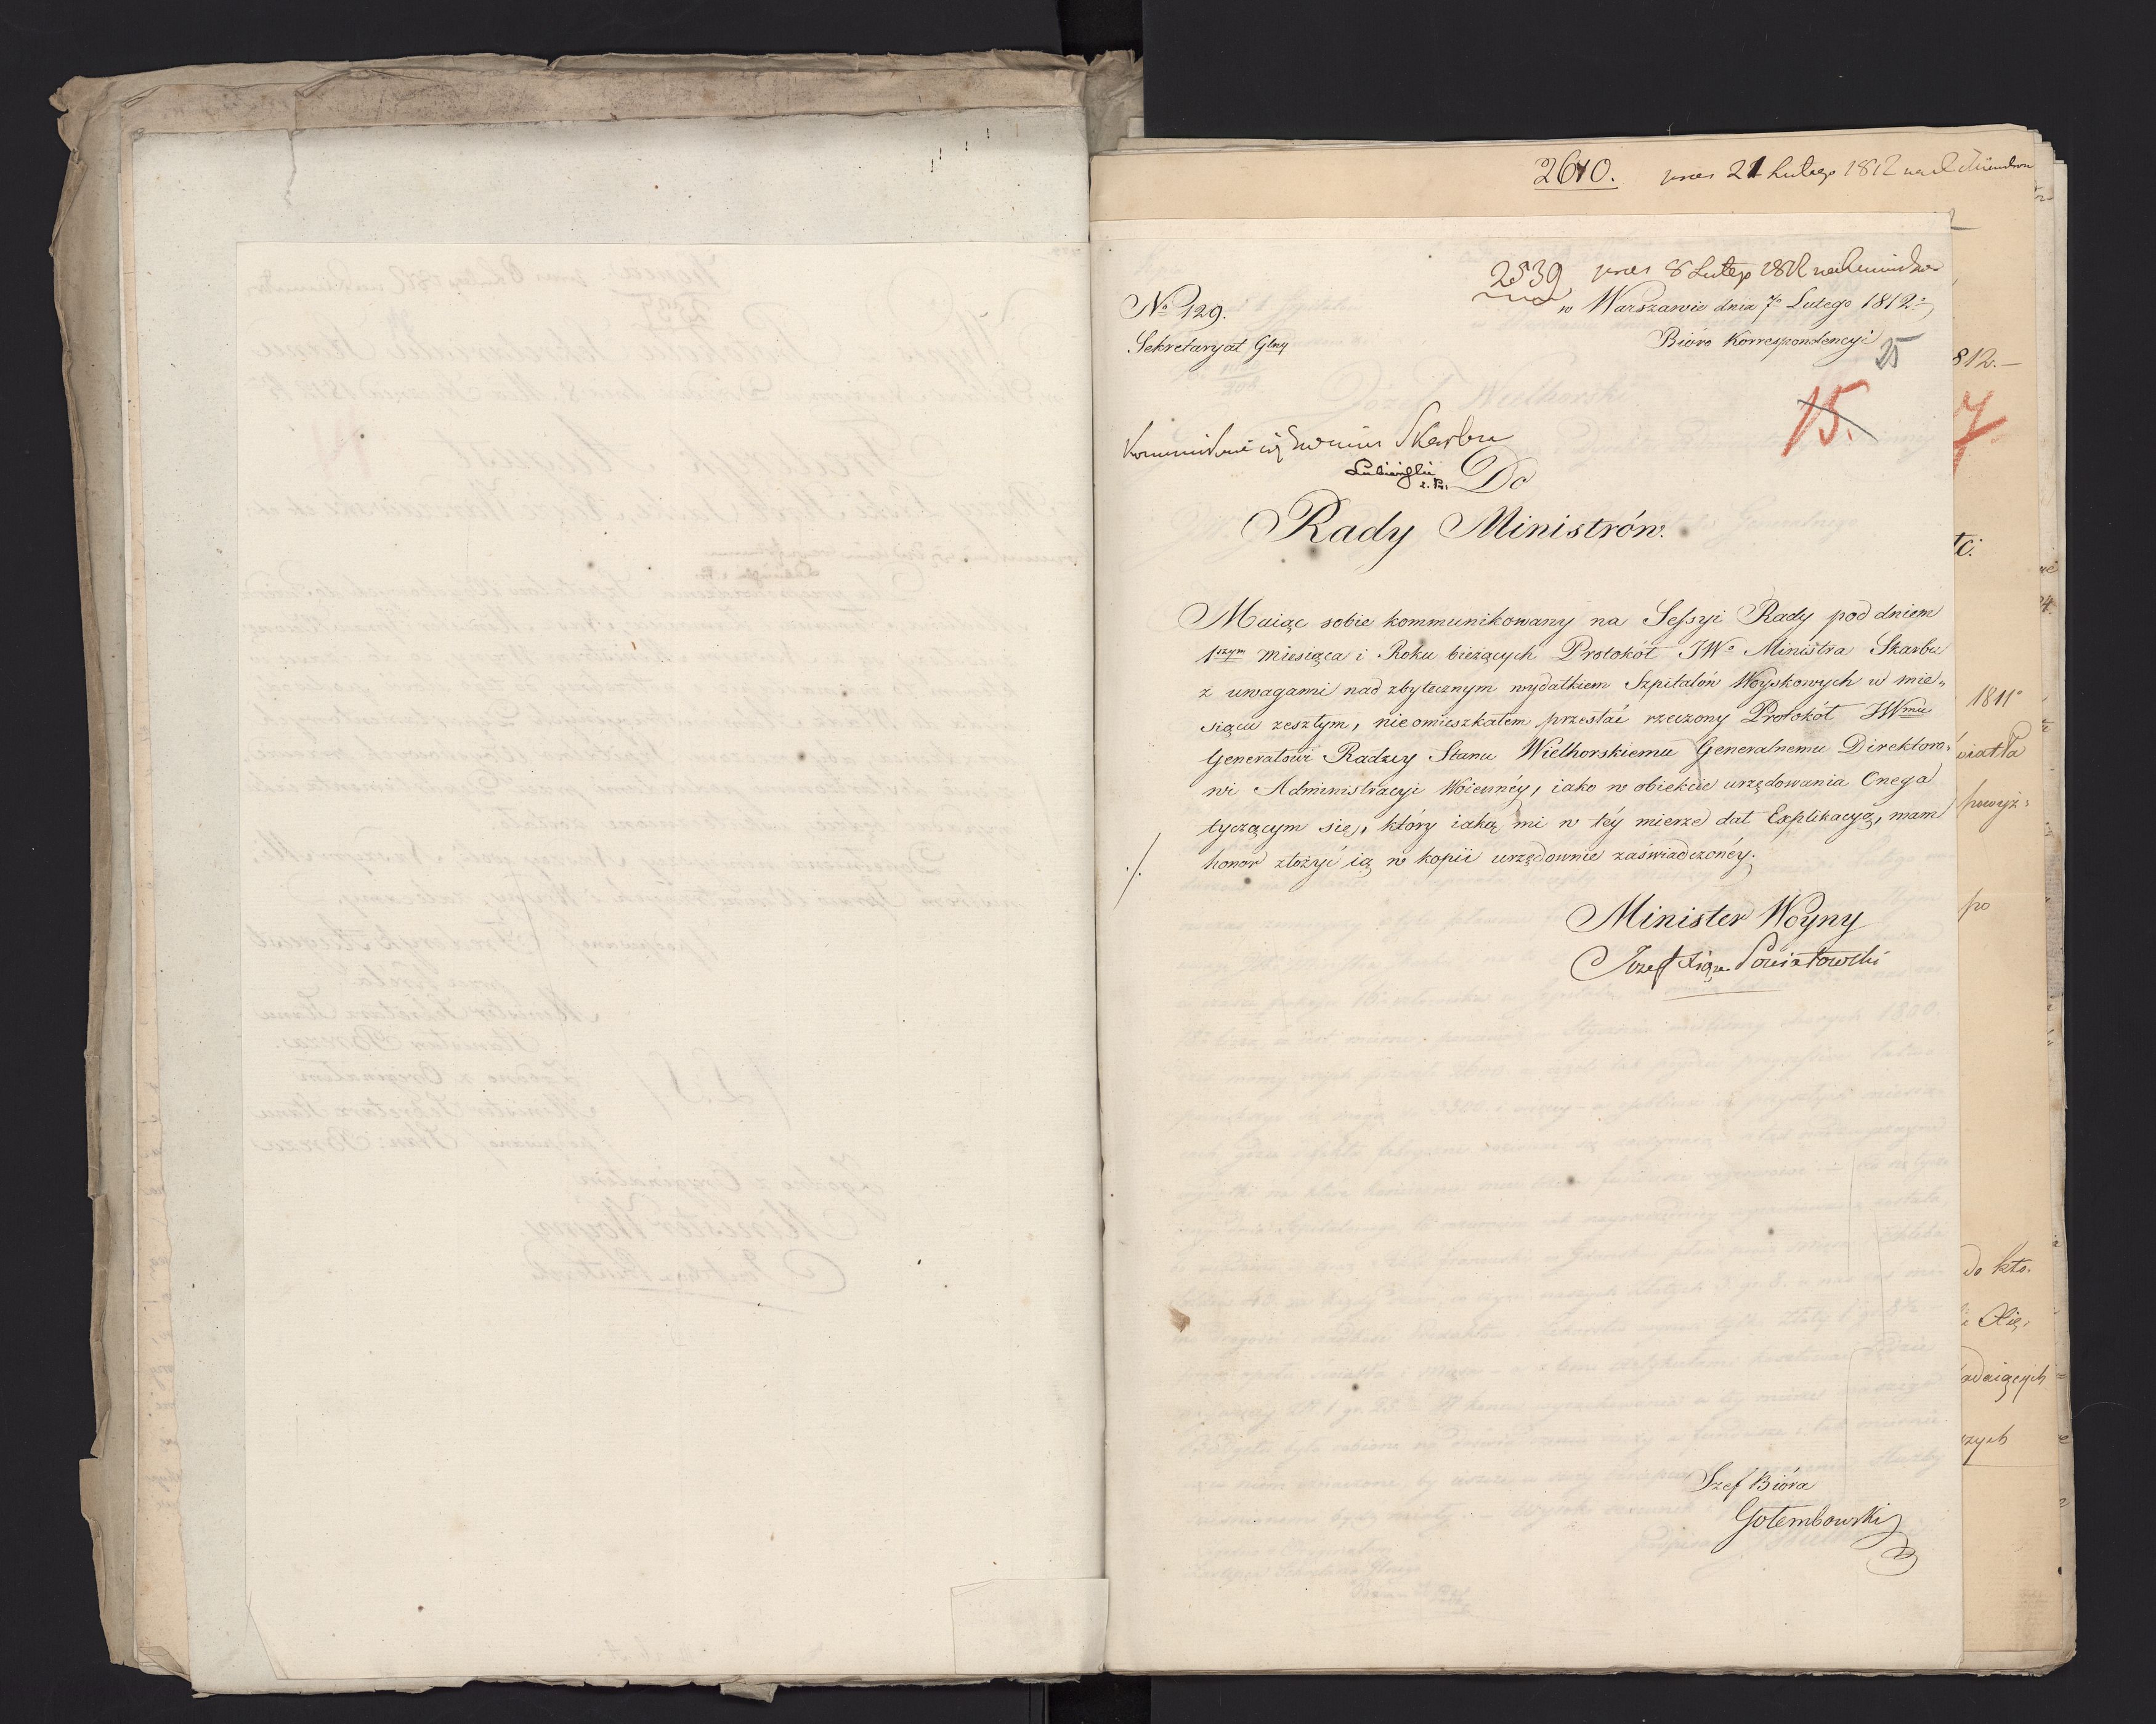 2610. prez 21 Lutego 1812
2539 prez 8 Lutego 1812
No 129. w Warszawie dnia 7o Lutego 1812o
Sekretaryat Glny Bióro Korrespondencyi
25
15.
Skarbu
Lubieński
Do
Rady Ministrów.
Maiąc sobie kommunikowany na Sessyi Rady pod dniem
1szym miesiąca i Roku bieżących Protokół JWo Ministra Skarbu
z uwagami nad zbytecznym wydatkiem Szpitalów Woyskowych w mie„
siącu zeszłym, nieomieszkałem przesłać rzeczony Protokół JWmu
Generałowi Radzcy Stanu Wielhorskiemu Generalnemu Direktoro„
wi Administracyi Woienney, iako w obiekcie urzędowania Onego
tyczącym się, który iaką mi w tey mierze dał Explikacyą, mam
./. honor złożyć ią w kopii urzędownie zaświadczoney.
Minister Woyny
Józef Xiąże Poniatowski
Szef Bióra
Gołembowski
812.—
7.
1811o
wiatła
powyż„
po
do kto„
daiących
szych